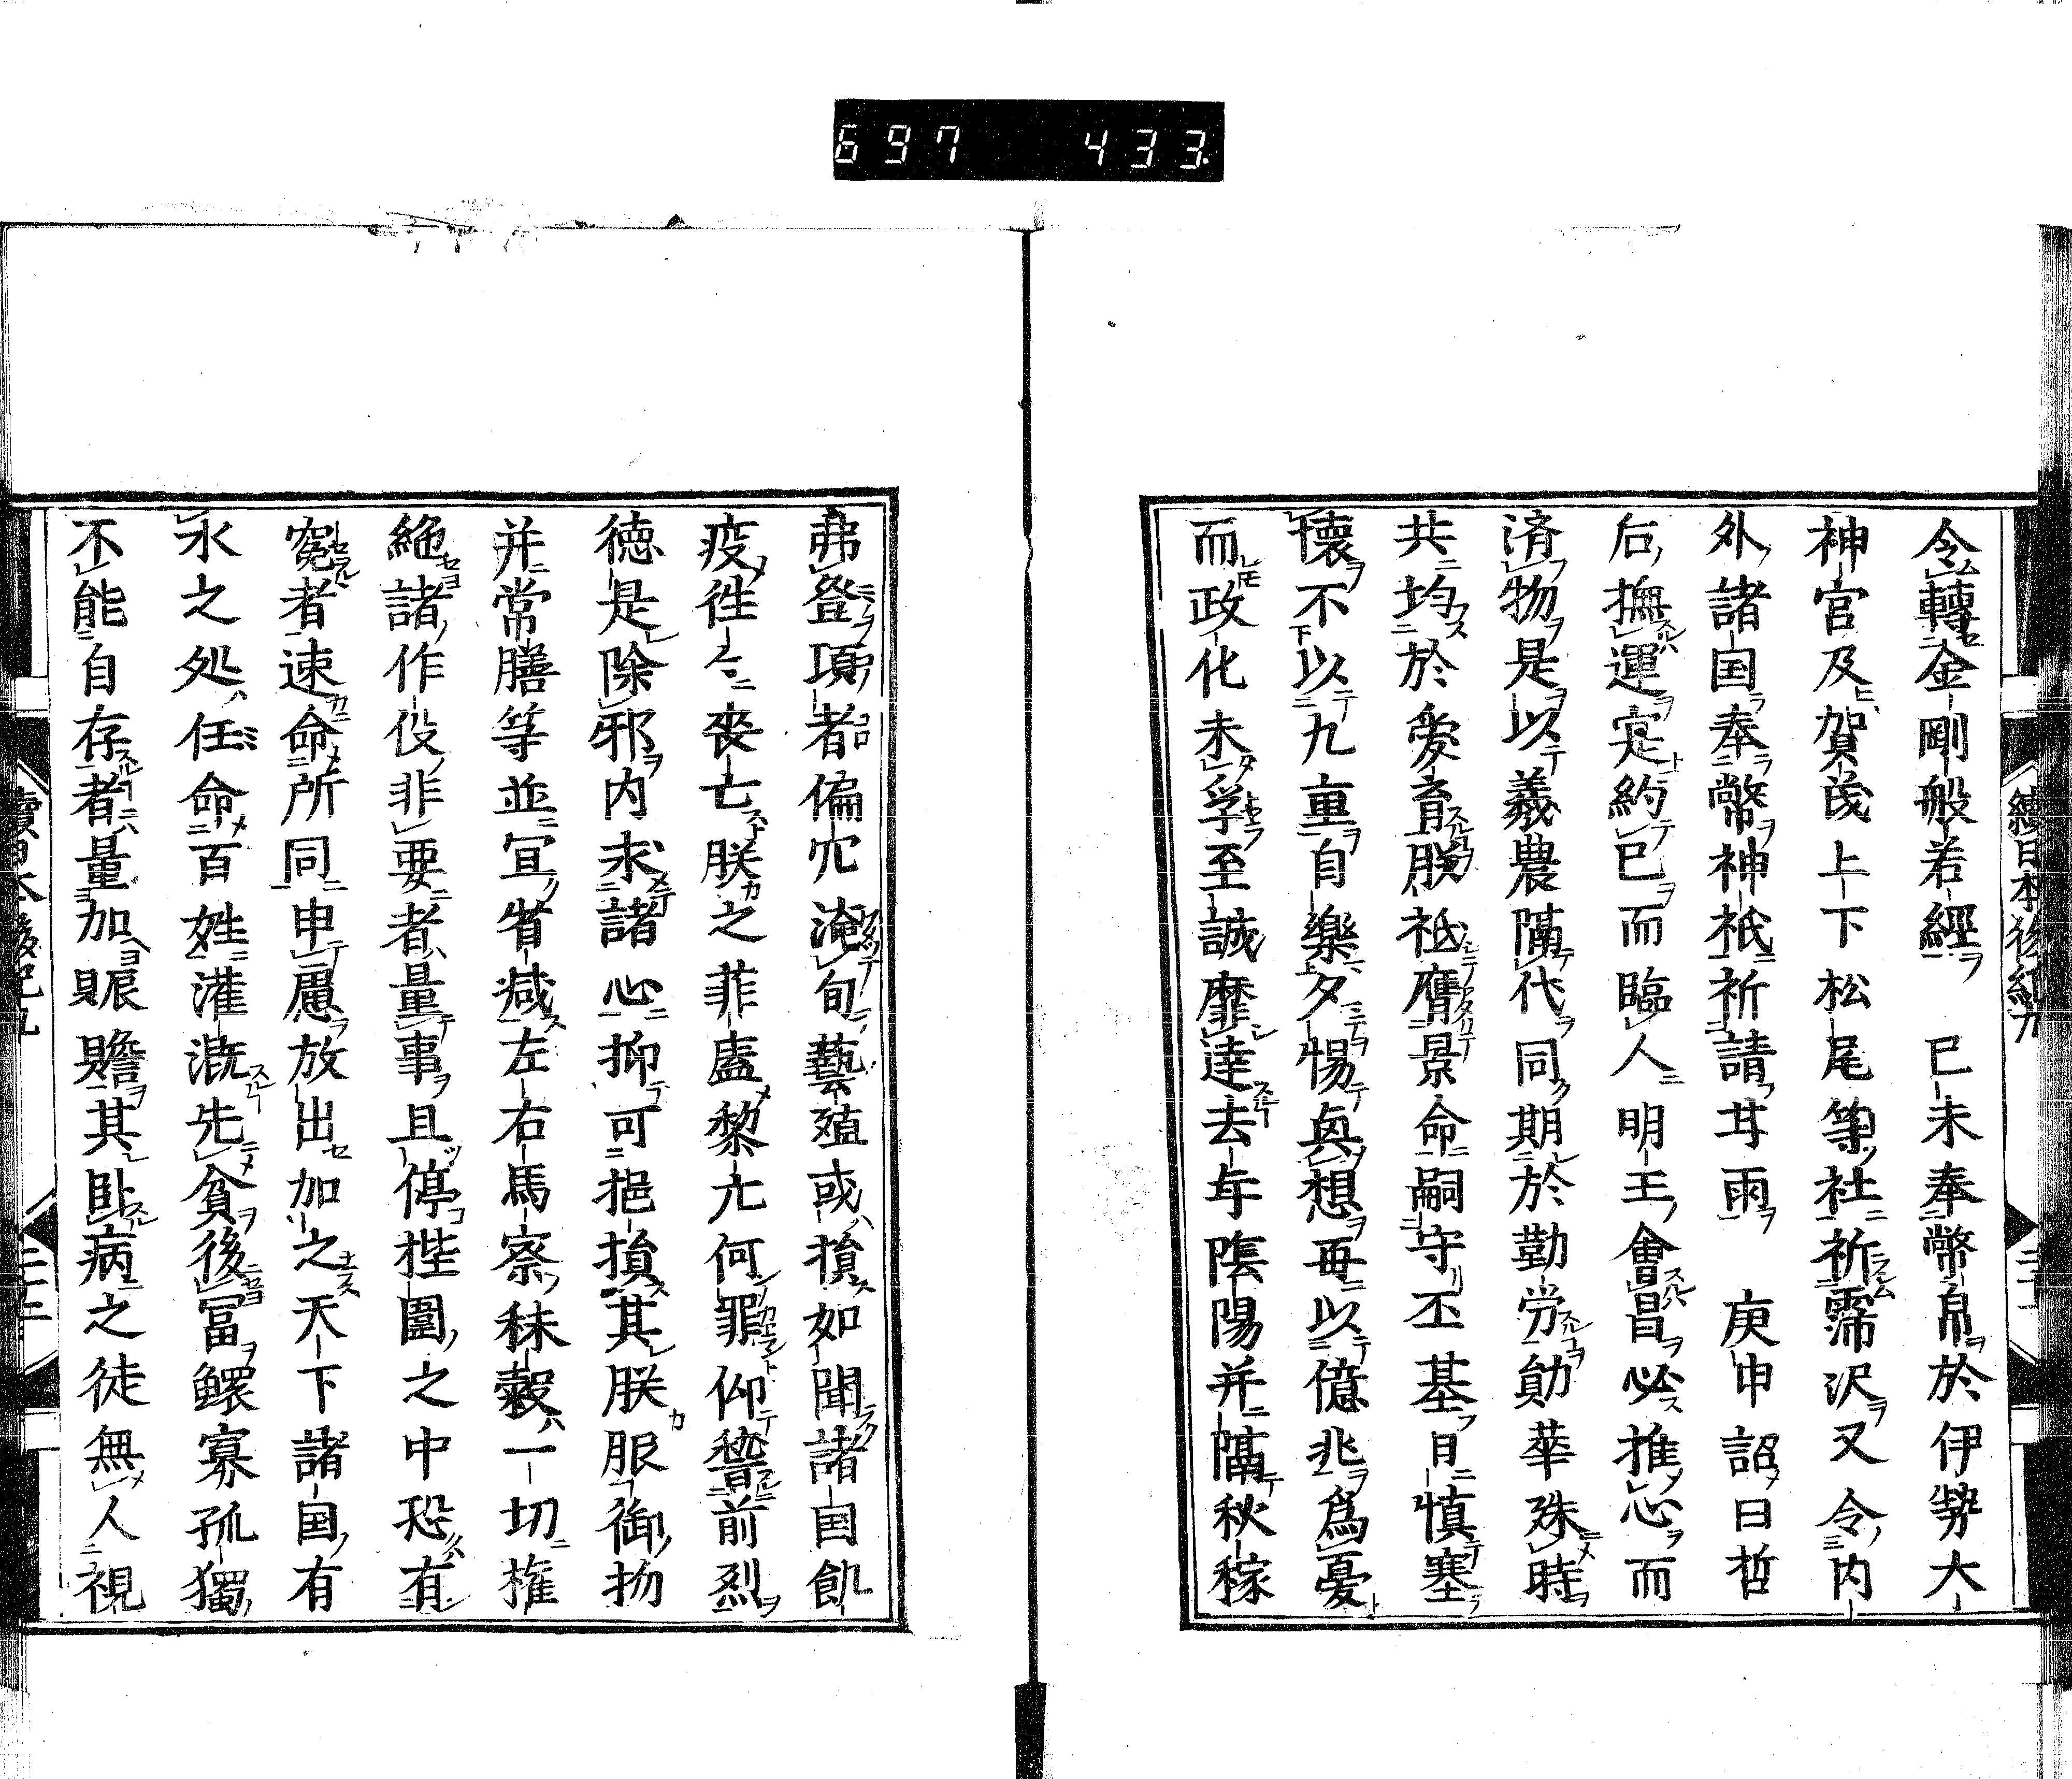 697 433.
續日本後紀九
令轉金剛般若經 已未奉幣帛於伊勢大
神宮及賀茂上下松尾等社祈霈沢又令内
外諸国奉幣神祇祈請甘雨 庚申詔曰哲
后撫運寔約已而臨人明王會昌必推心而
済物是以羲農隔代同期於勤労勛華殊時
共均於愛育朕祇膺景命嗣守丕基日慎塞
懐不以九重自樂夕惕興想再以億兆為憂
而政化未孚至誠靡達去年陰陽并隔秋稼
弗登項者偏亢淹旬藝殖或損如聞諸国飢
疫徃〻喪亡朕之菲虚黎元何罪仰瞻前烈
徳是除邪内求諸心抑可挹損其朕服御物
并常膳等並宜省減左右馬寮秣穀一切権
絶諸作役非要者量事且停狴圄之中恐有
寃者速命所司申慮放出加之天下諸国有
水之処任命百姓灌漑先貧後冨鰥寡孤獨
不能自存者量加賑贍其臥病之徒無人視